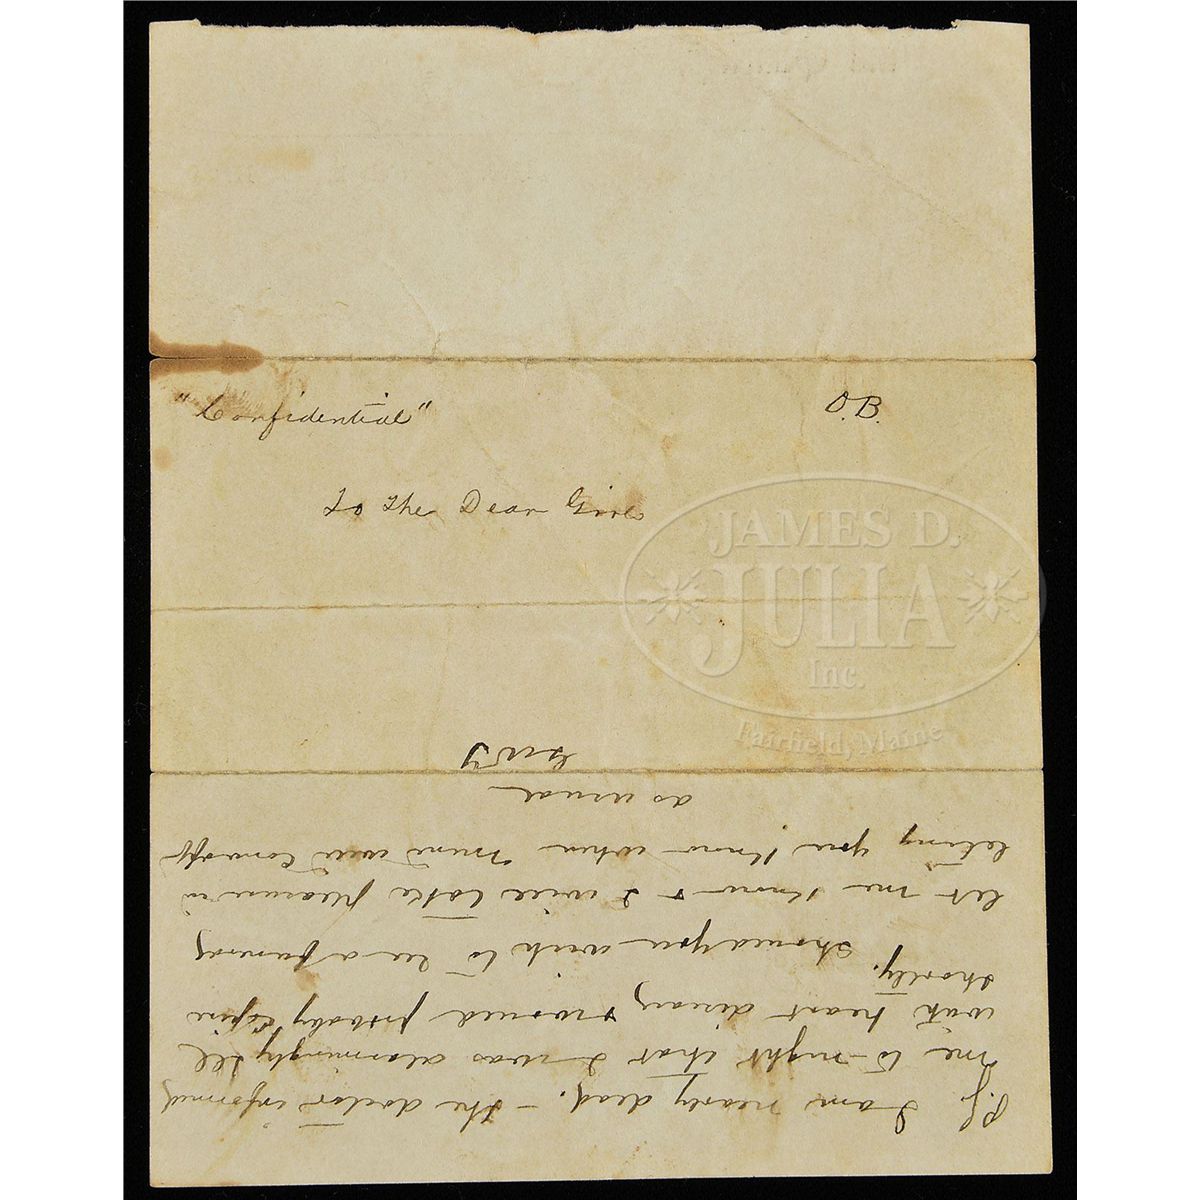 "Confidential"
O.B.
To the Dear Girl
P.S. I am nearly dead. - the doctor informed
me to-night that I was alarmingly ill
with heart disease, & would probably expire
shortly. Should you wish to see a funeral
let me know & I will take pleasure in
letting you know when mine will come off
as usual
JAMES D.
JULIA
Inc.
Fairfield, Maine